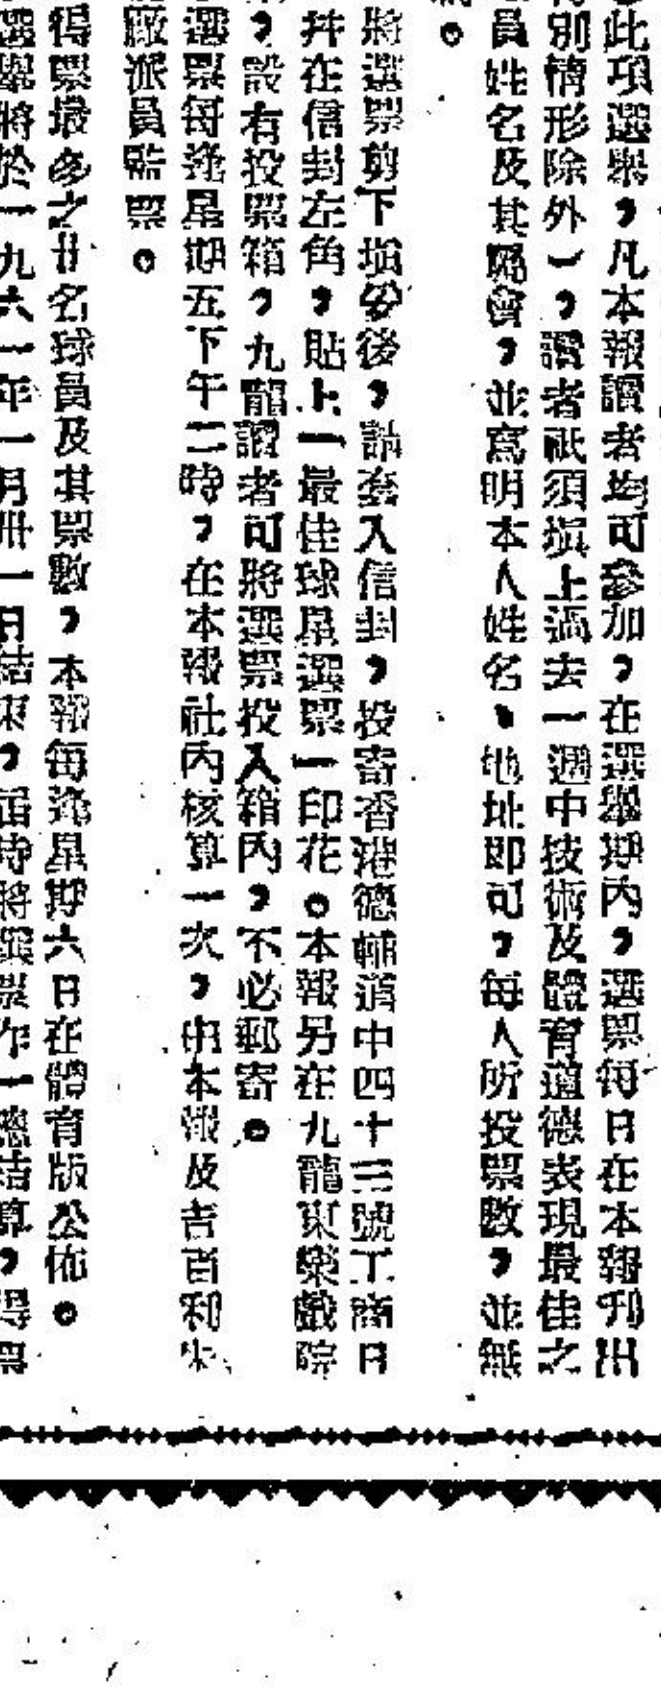 此項選舉，凡本報讀者均可參加，在選舉期內，選票每日在本報刊出
別情形除外），讀者祇須塡上過去一週中技術及體育道德表現最佳之
員姓名及其屬會，並寫明本人姓名、地址即可，每人所投票數，並無
。
將選票剪下塡妥後，請套入信封，投寄香港德輔道中四十三號工商日
幷在信封左角，貼上「最佳球星選票」印花。本報另在九龍東樂戲院
，設有投票箱，九龍讀者可將選票投入箱內，不必郵寄。
選票每逢星期五下午二時，在本報社內核算一次，由本報及吉百利朱
廠派員監票。
得票最多之廿名球員及其票數，本報每逢星期六日在體育版公佈。
選舉將於一九六一年一月卅一日結束，屆時將選票作一總結算，得票